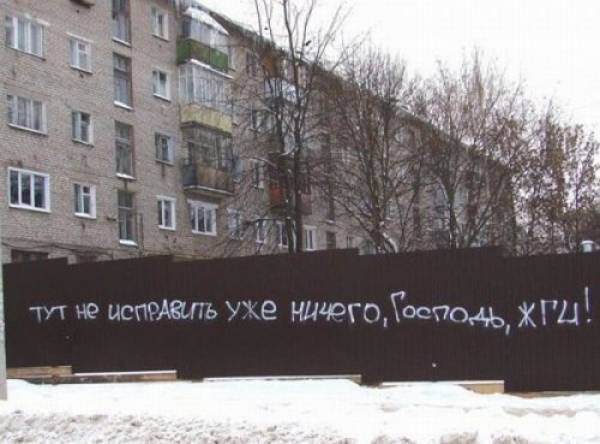 тут не исправить уже ничего, Господь, жги!